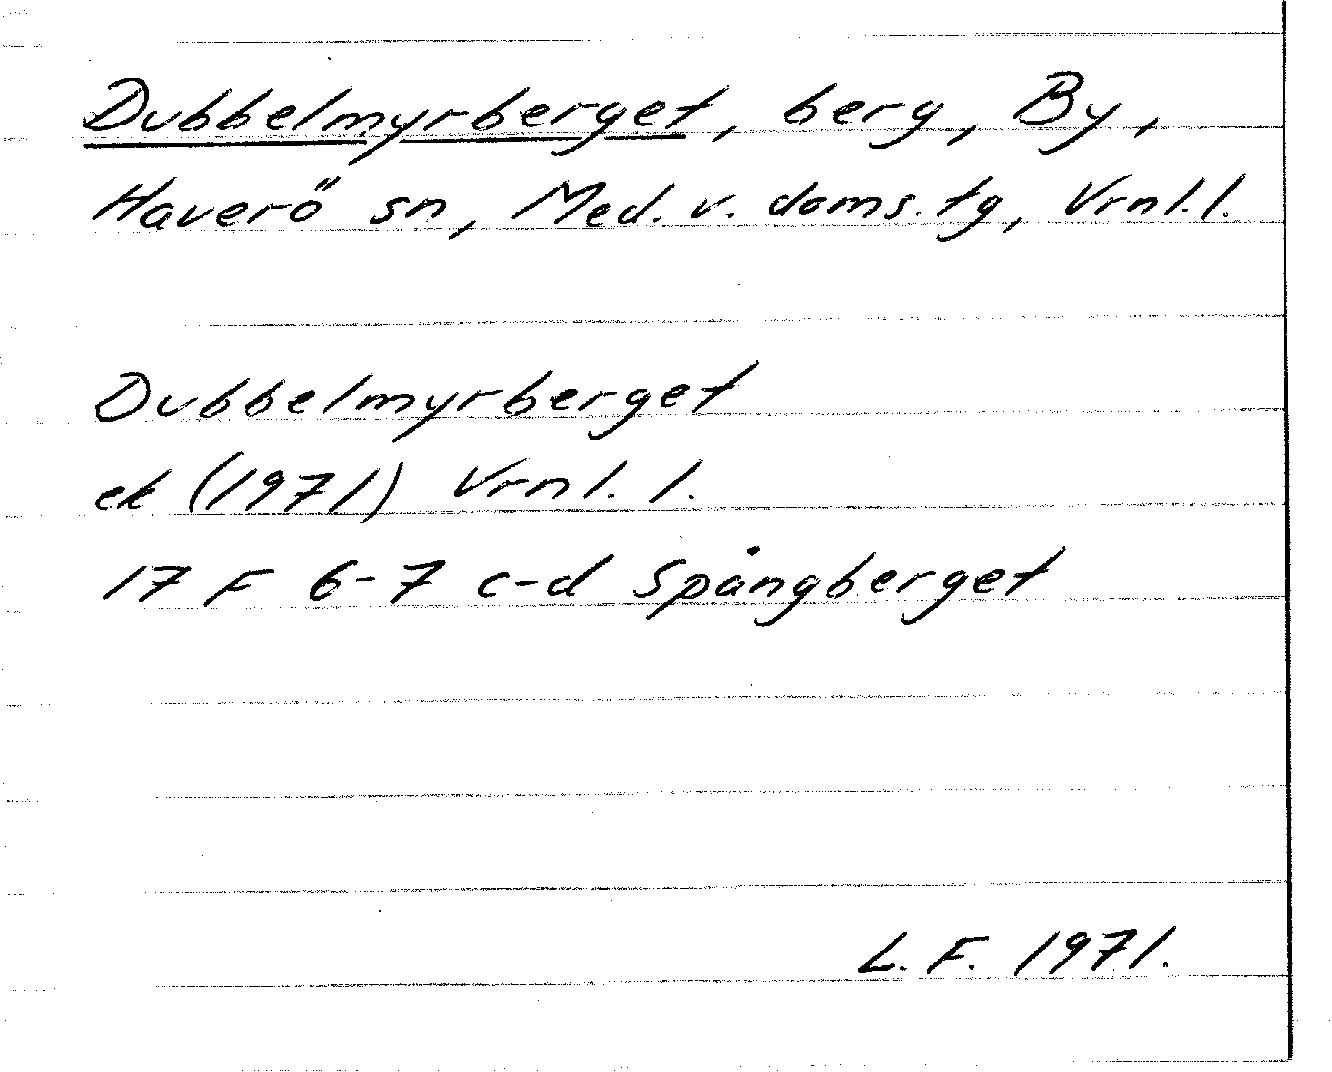 Dubbelmyrberget, berg, By,
Haverö sn, Med. v. doms. tg, Vrnl. l.
Dubbelmyrberget
ek (1971) Vrnl. l.
17 F 6-7 c-d Spångberget
L. F. 1971.